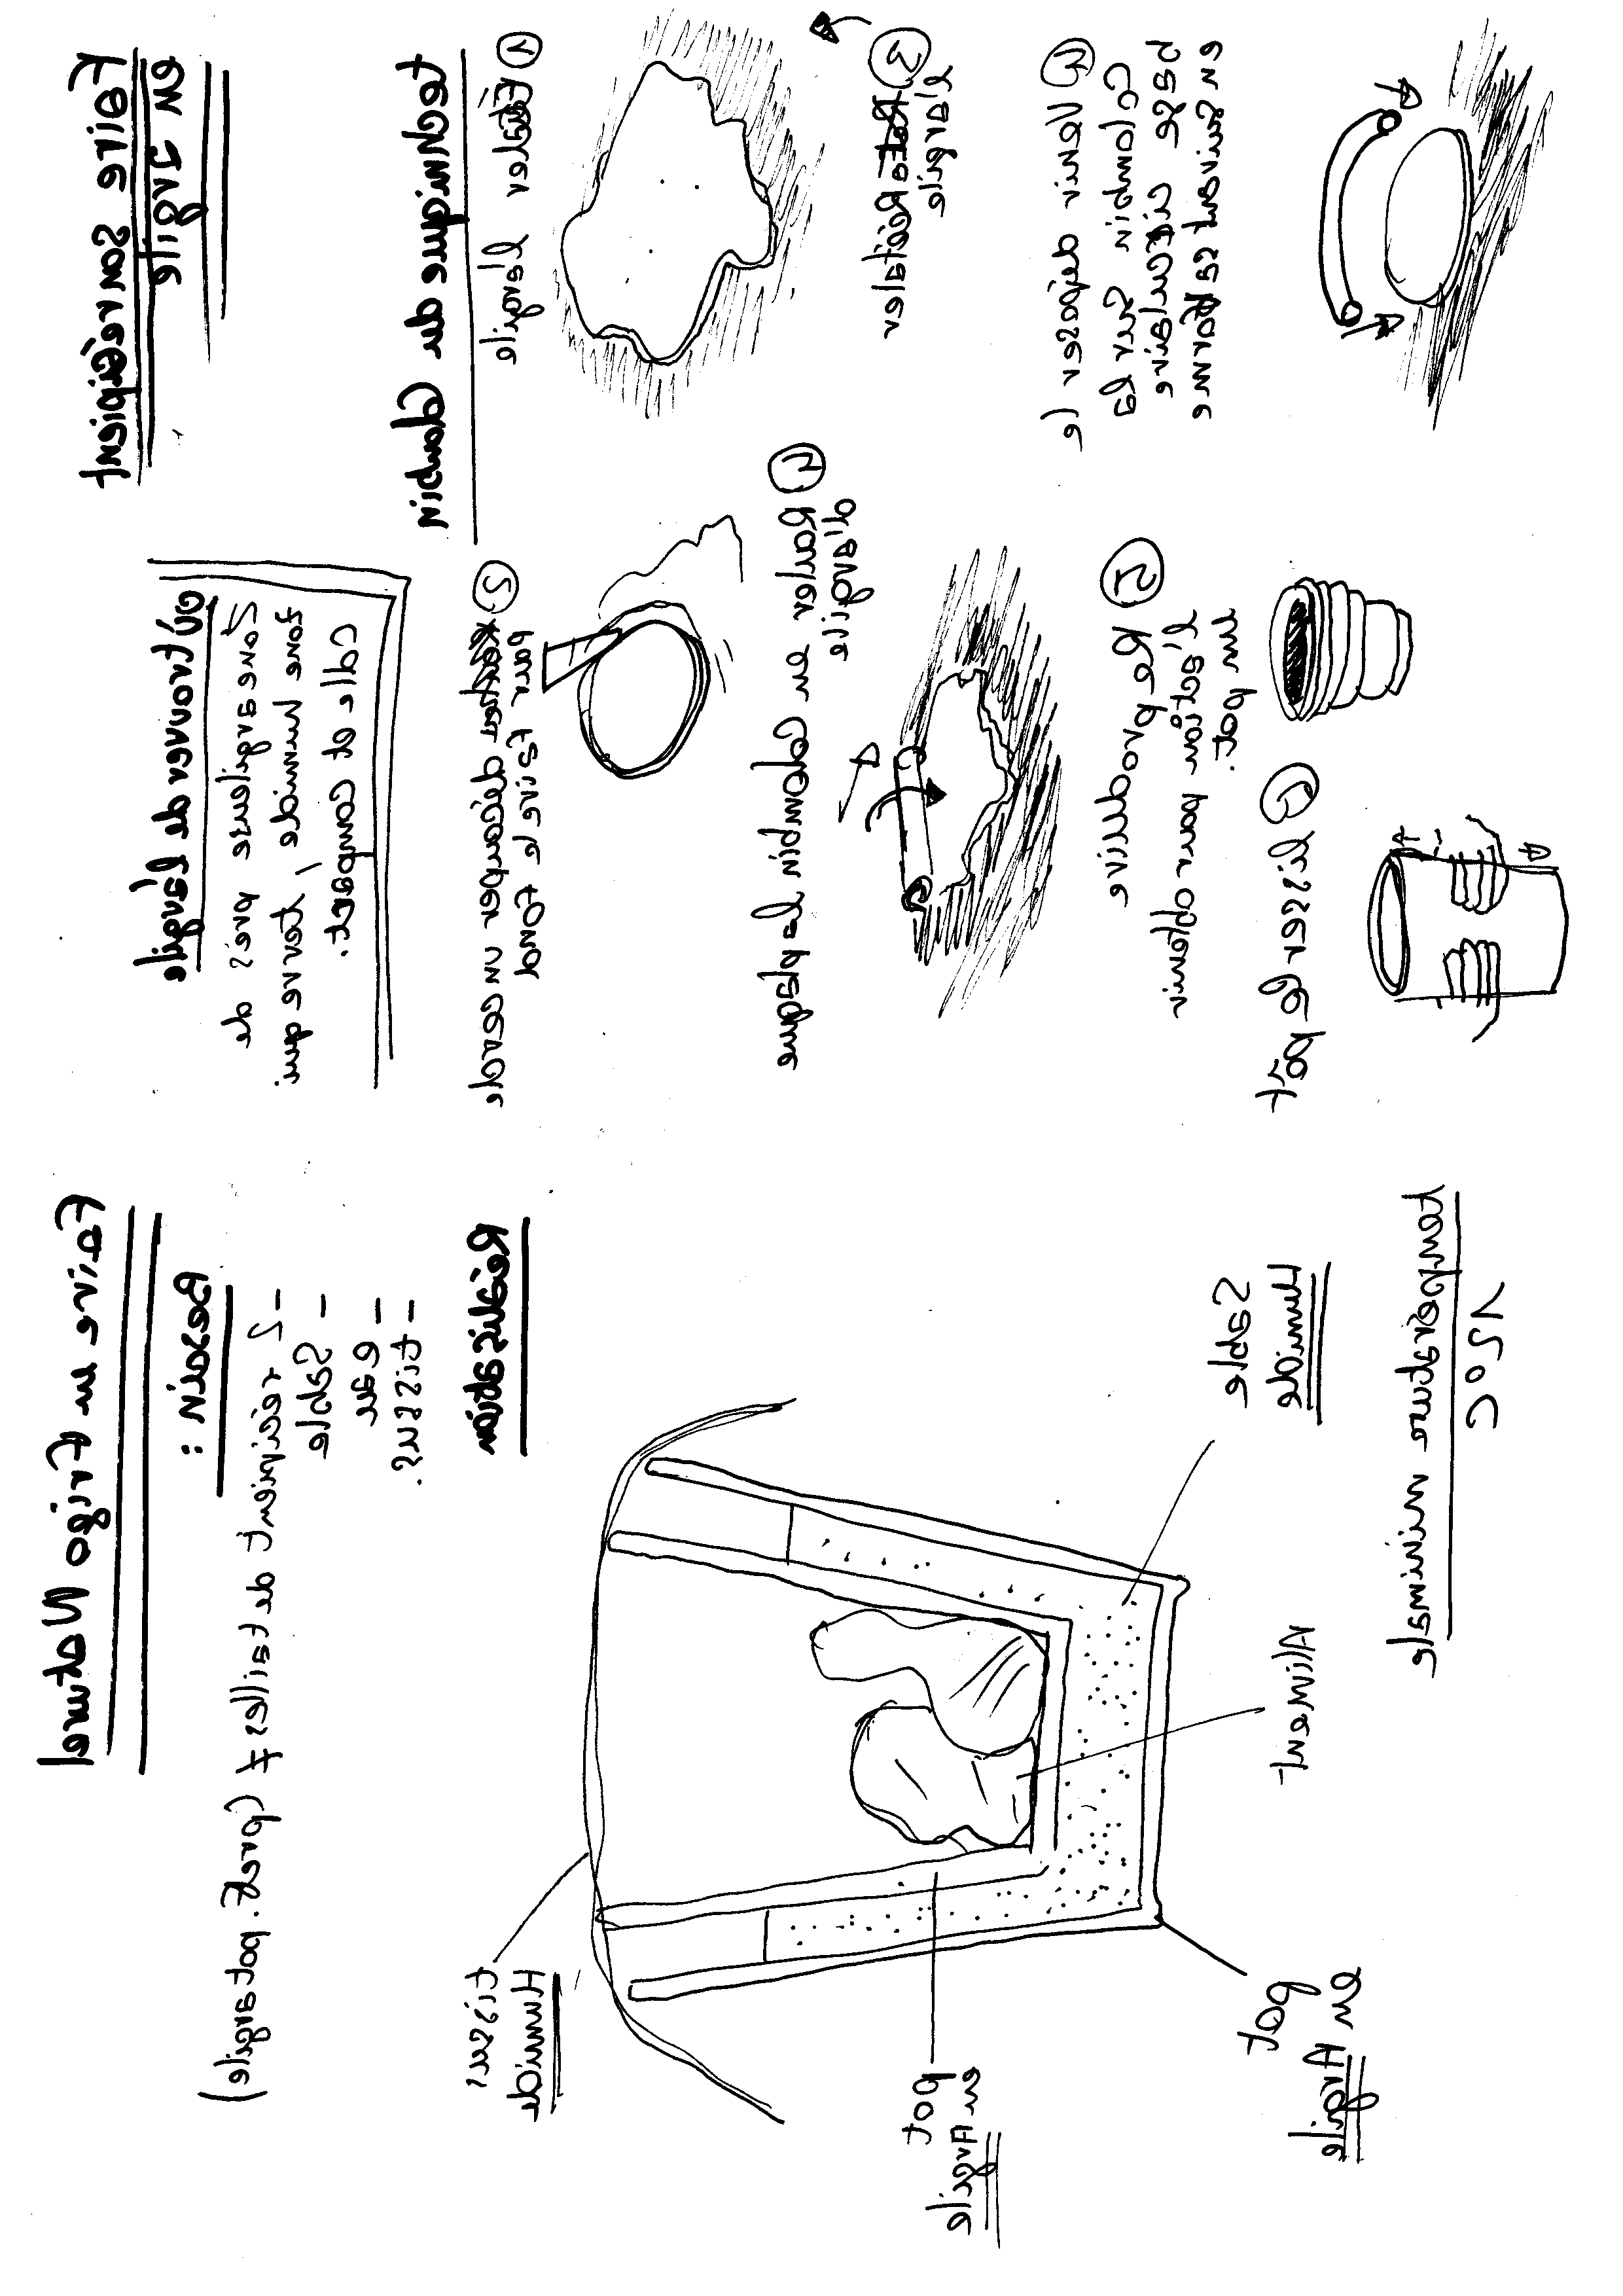 Faire son récipient
en Argile
où trouver de l'argile
Zone argileuse près de
zone humide, terre qui
colle et compact.
technique du Colombin
① Étaler l'argile
② découper un cercle
pour faire le fond
③ Réétaler
l'argile
④ Rouler en colombin la plaque
d'argile
④ Venir déposer le
Colombin sur la
base circulaire
en suivant sa forme
⑤ Reproduire
l'action pour obtenir
un pot.
⑥ lisser le pot
Faire un frigo Naturel
Besoin :
- 2 récipient de tailles ≠ (pref. pot argile)
- Sable
- eau
- tissus.
Réalisation
tissus
Humide
pot
en Argile
pot
en Argile
Aliment
Sable
Humide
température minimale
15°C